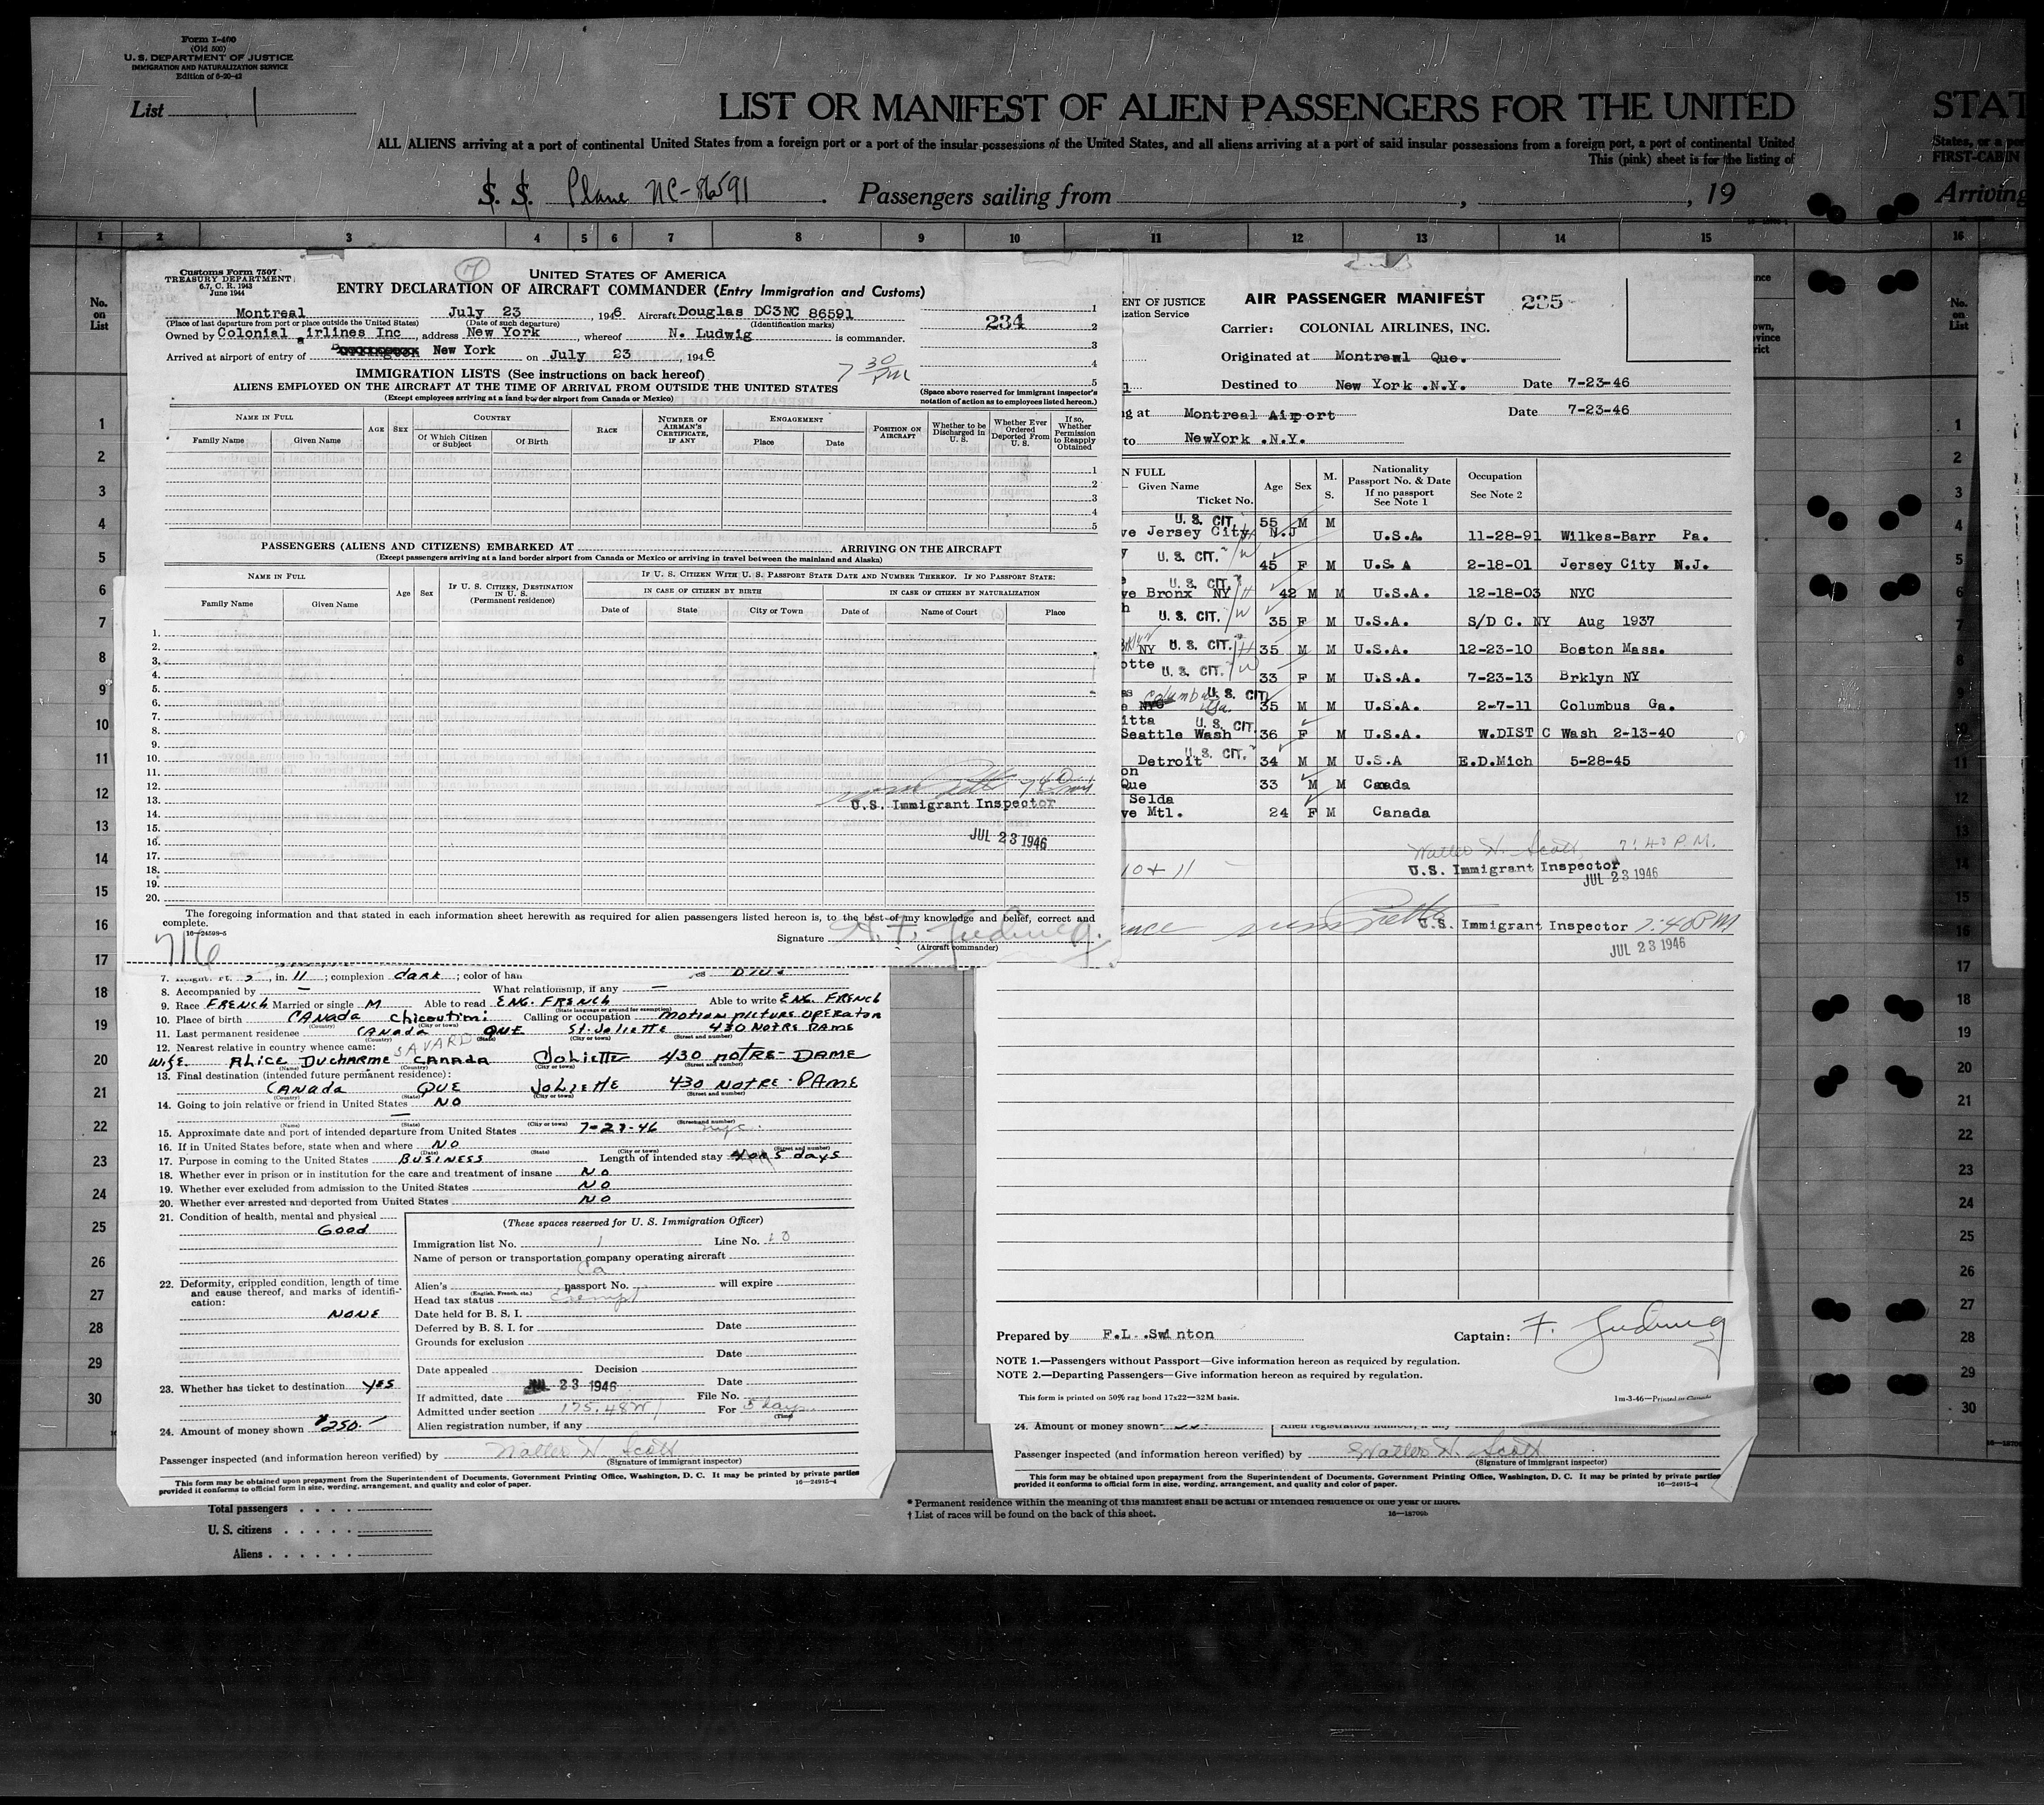 Form I-400
(Old 500)
U. S. DEPARTMENT OF JUSTICE
IMMIGRATION AND NATURALIZATION SERVICE
Edition of 6-20-42
List 1
LIST OR MANIFEST OF ALIEN PASSENGERS FOR THE UNITED
STAT
ALL ALIENS arriving at a port of continental United States from a foreign port or a port of the insular possessions of the United States, and all aliens arriving at a port of said insular possessions from a foreign port, a port of continental United
States, or a por
This (pink) sheet is for the listing of
FIRST-CABIN
S. S. Plane NC-86591. Passengers sailing from , , 19
Arriving
1 2 3 4 5 6 7 8 9 10 11 12 13 14 15 16
No. on List
Customs Form 7507
TREASURY DEPARTMENT
6.7, C. R. 1943
June 1944
7
UNITED STATES OF AMERICA
ENTRY DECLARATION OF AIRCRAFT COMMANDER (Entry Immigration and Customs)
Montreal July 23, 1946 Aircraft Douglas DC3NC 86591
(Place of last departure from port or place outside the United States) (Date of such departure) (Identification marks)
234
Owned by Colonial airlines Inc, address New York, whereof N. Ludwig is commander.
Arrived at airport of entry of New York on July 23, 1946
7 30 PM
IMMIGRATION LISTS (See instructions on back hereof)
ALIENS EMPLOYED ON THE AIRCRAFT AT THE TIME OF ARRIVAL FROM OUTSIDE THE UNITED STATES
(Except employees arriving at a land border airport from Canada or Mexico)
1
2
3
4
5
(Space above reserved for immigrant inspector's notation of action as to employees listed hereon.)
NAME IN FULL
Family Name Given Name
AGE SEX
COUNTRY
Of Which Citizen or Subject Of Birth
RACE
NUMBER OF AIRMAN'S CERTIFICATE, IF ANY
ENGAGEMENT
Place Date
POSITION ON AIRCRAFT
Whether to be Discharged in U. S.
Whether Ever Ordered Deported From U. S.
If so, Whether Permission to Reapply Obtained
1
2
3
4
5
PASSENGERS (ALIENS AND CITIZENS) EMBARKED AT ARRIVING ON THE AIRCRAFT
(Except passengers arriving at a land border airport from Canada or Mexico or arriving in travel between the mainland and Alaska)
NAME IN FULL
Family Name Given Name
Age Sex
IF U. S. CITIZEN, DESTINATION IN U. S.
(Permanent residence)
IF U. S. CITIZEN WITH U. S. PASSPORT STATE DATE AND NUMBER THEREOF. IF NO PASSPORT STATE:
IN CASE OF CITIZEN BY BIRTH IN CASE OF CITIZEN BY NATURALIZATION
Date of State City or Town Date of Name of Court Place
1.
2.
3.
4.
5.
6.
7.
8.
9.
10.
11.
12.
13.
14.
15.
16.
17.
18.
19.
20.
U.S. Immigrant Inspector
JUL 23 1946
The foregoing information and that stated in each information sheet herewith as required for alien passengers listed hereon is, to the best of my knowledge and belief, correct and complete.
16—24598-5
Signature
(Aircraft commander)
716
ENT OF JUSTICE
ization Service
AIR PASSENGER MANIFEST
235
Carrier: COLONIAL AIRLINES, INC.
Originated at Montreal Que.
Destined to New York .N.Y. Date 7-23-46
g at Montreal Airport Date 7-23-46
to NewYork .N.Y.
N FULL
Given Name
Ticket No.
Age Sex M. S.
Nationality
Passport No. & Date
If no passport
See Note 1
Occupation
See Note 2
ve Jersey City N.J U. S. CIT. 55 M M U.S.A. 11-28-91 Wilkes-Barr Pa.
y U. S. CIT. 45 F M U.S.A 2-18-01 Jersey City N.J.
ve Bronx NY U. S. CIT. 42 M M U.S.A. 12-18-03 NYC
h U. S. CIT. 35 F M U.S.A. S/D C. NY Aug 1937
NY U. S. CIT. 35 M M U.S.A. 12-23-10 Boston Mass.
otte U. S. CIT. 33 F M U.S.A. 7-23-13 Brklyn NY
Columbus Ga. U. S. CIT 35 M M U.S.A. 2-7-11 Columbus Ga.
itta
Seattle Wash U. S. CIT. 36 F M U.S.A. W.DIST C Wash 2-13-40
Detroit U. S. CIT. 34 M M U.S.A E.D.Mich 5-28-45
on
Que 33 M M Canada
Selda
ve Mtl. 24 F M Canada
Walter H. Scott 7:40 P.M.
10 + 11
U.S. Immigrant Inspector
JUL 23 1946
U.S. Immigrant Inspector 7:40PM
JUL 23 1946
Prepared by F.L. Swinton Captain: F. Ludwig
NOTE 1.—Passengers without Passport—Give information hereon as required by regulation.
NOTE 2.—Departing Passengers—Give information hereon as required by regulation.
This form is printed on 50% rag bond 17x22—32M basis. 1m-3-46—Printed in Canada
7. Height: ft. 5, in. 11; complexion dark; color of hair
8. Accompanied by — What relationship, if any —
9. Race FRENCH Married or single M Able to read ENG. FRENCH Able to write ENG. FRENCH
(State language or ground for exemption)
10. Place of birth CANADA Chicoutimi Calling or occupation Motion picture operator
(Country) (City or town)
11. Last permanent residence CANADA QUE St. Joliette 430 NOTRE DAME
(Country) (State) (City or town) (Street and number)
12. Nearest relative in country whence came: SAVARD
Wife ALICE DUCHARME CANADA JOLIETTE 430 NOTRE-DAME
(Name) (Country) (City or town) (Street and number)
13. Final destination (intended future permanent residence):
CANADA QUE JOLIETTE 430 NOTRE-DAME
(Country) (State) (City or town) (Street and number)
14. Going to join relative or friend in United States NO
—
(Name) (State) (City or town) (Street and number)
15. Approximate date and port of intended departure from United States 7-27-46 nyc.
16. If in United States before, state when and where NO
(Date) (State) (City or town) (Street and number)
17. Purpose in coming to the United States BUSINESS Length of intended stay 4 or 5 days
18. Whether ever in prison or in institution for the care and treatment of insane NO
19. Whether ever excluded from admission to the United States NO
20. Whether ever arrested and deported from United States NO
21. Condition of health, mental and physical
Good
22. Deformity, crippled condition, length of time and cause thereof, and marks of identification:
NONE
23. Whether has ticket to destination YES
24. Amount of money shown $250.—
(These spaces reserved for U. S. Immigration Officer)
Immigration list No. 1 Line No. 10
Name of person or transportation company operating aircraft
Ca
Alien's passport No. will expire
(English, French, etc.)
Head tax status Exempt
Date held for B. S. I.
Deferred by B. S. I. for Date
Grounds for exclusion
Date
Date appealed Decision
Date
If admitted, date JUL 23 1946 File No.
Admitted under section 175.48 For 5 days
(Time)
Alien registration number, if any
Passenger inspected (and information hereon verified) by Walter H. Scott
(Signature of immigrant inspector)
This form may be obtained upon prepayment from the Superintendent of Documents, Government Printing Office, Washington, D. C. It may be printed by private parties provided it conforms to official form in size, wording, arrangement, and quality and color of paper. 16—24915-4
24. Amount of money shown
Alien registration number, if any
Passenger inspected (and information hereon verified) by Walter H. Scott
(Signature of immigrant inspector)
This form may be obtained upon prepayment from the Superintendent of Documents, Government Printing Office, Washington, D. C. It may be printed by private parties provided it conforms to official form in size, wording, arrangement, and quality and color of paper. 16—24915-4
Total passengers
U. S. citizens
Aliens
* Permanent residence within the meaning of this manifest shall be actual or intended residence of one year or more.
† List of races will be found on the back of this sheet.
16—18700b